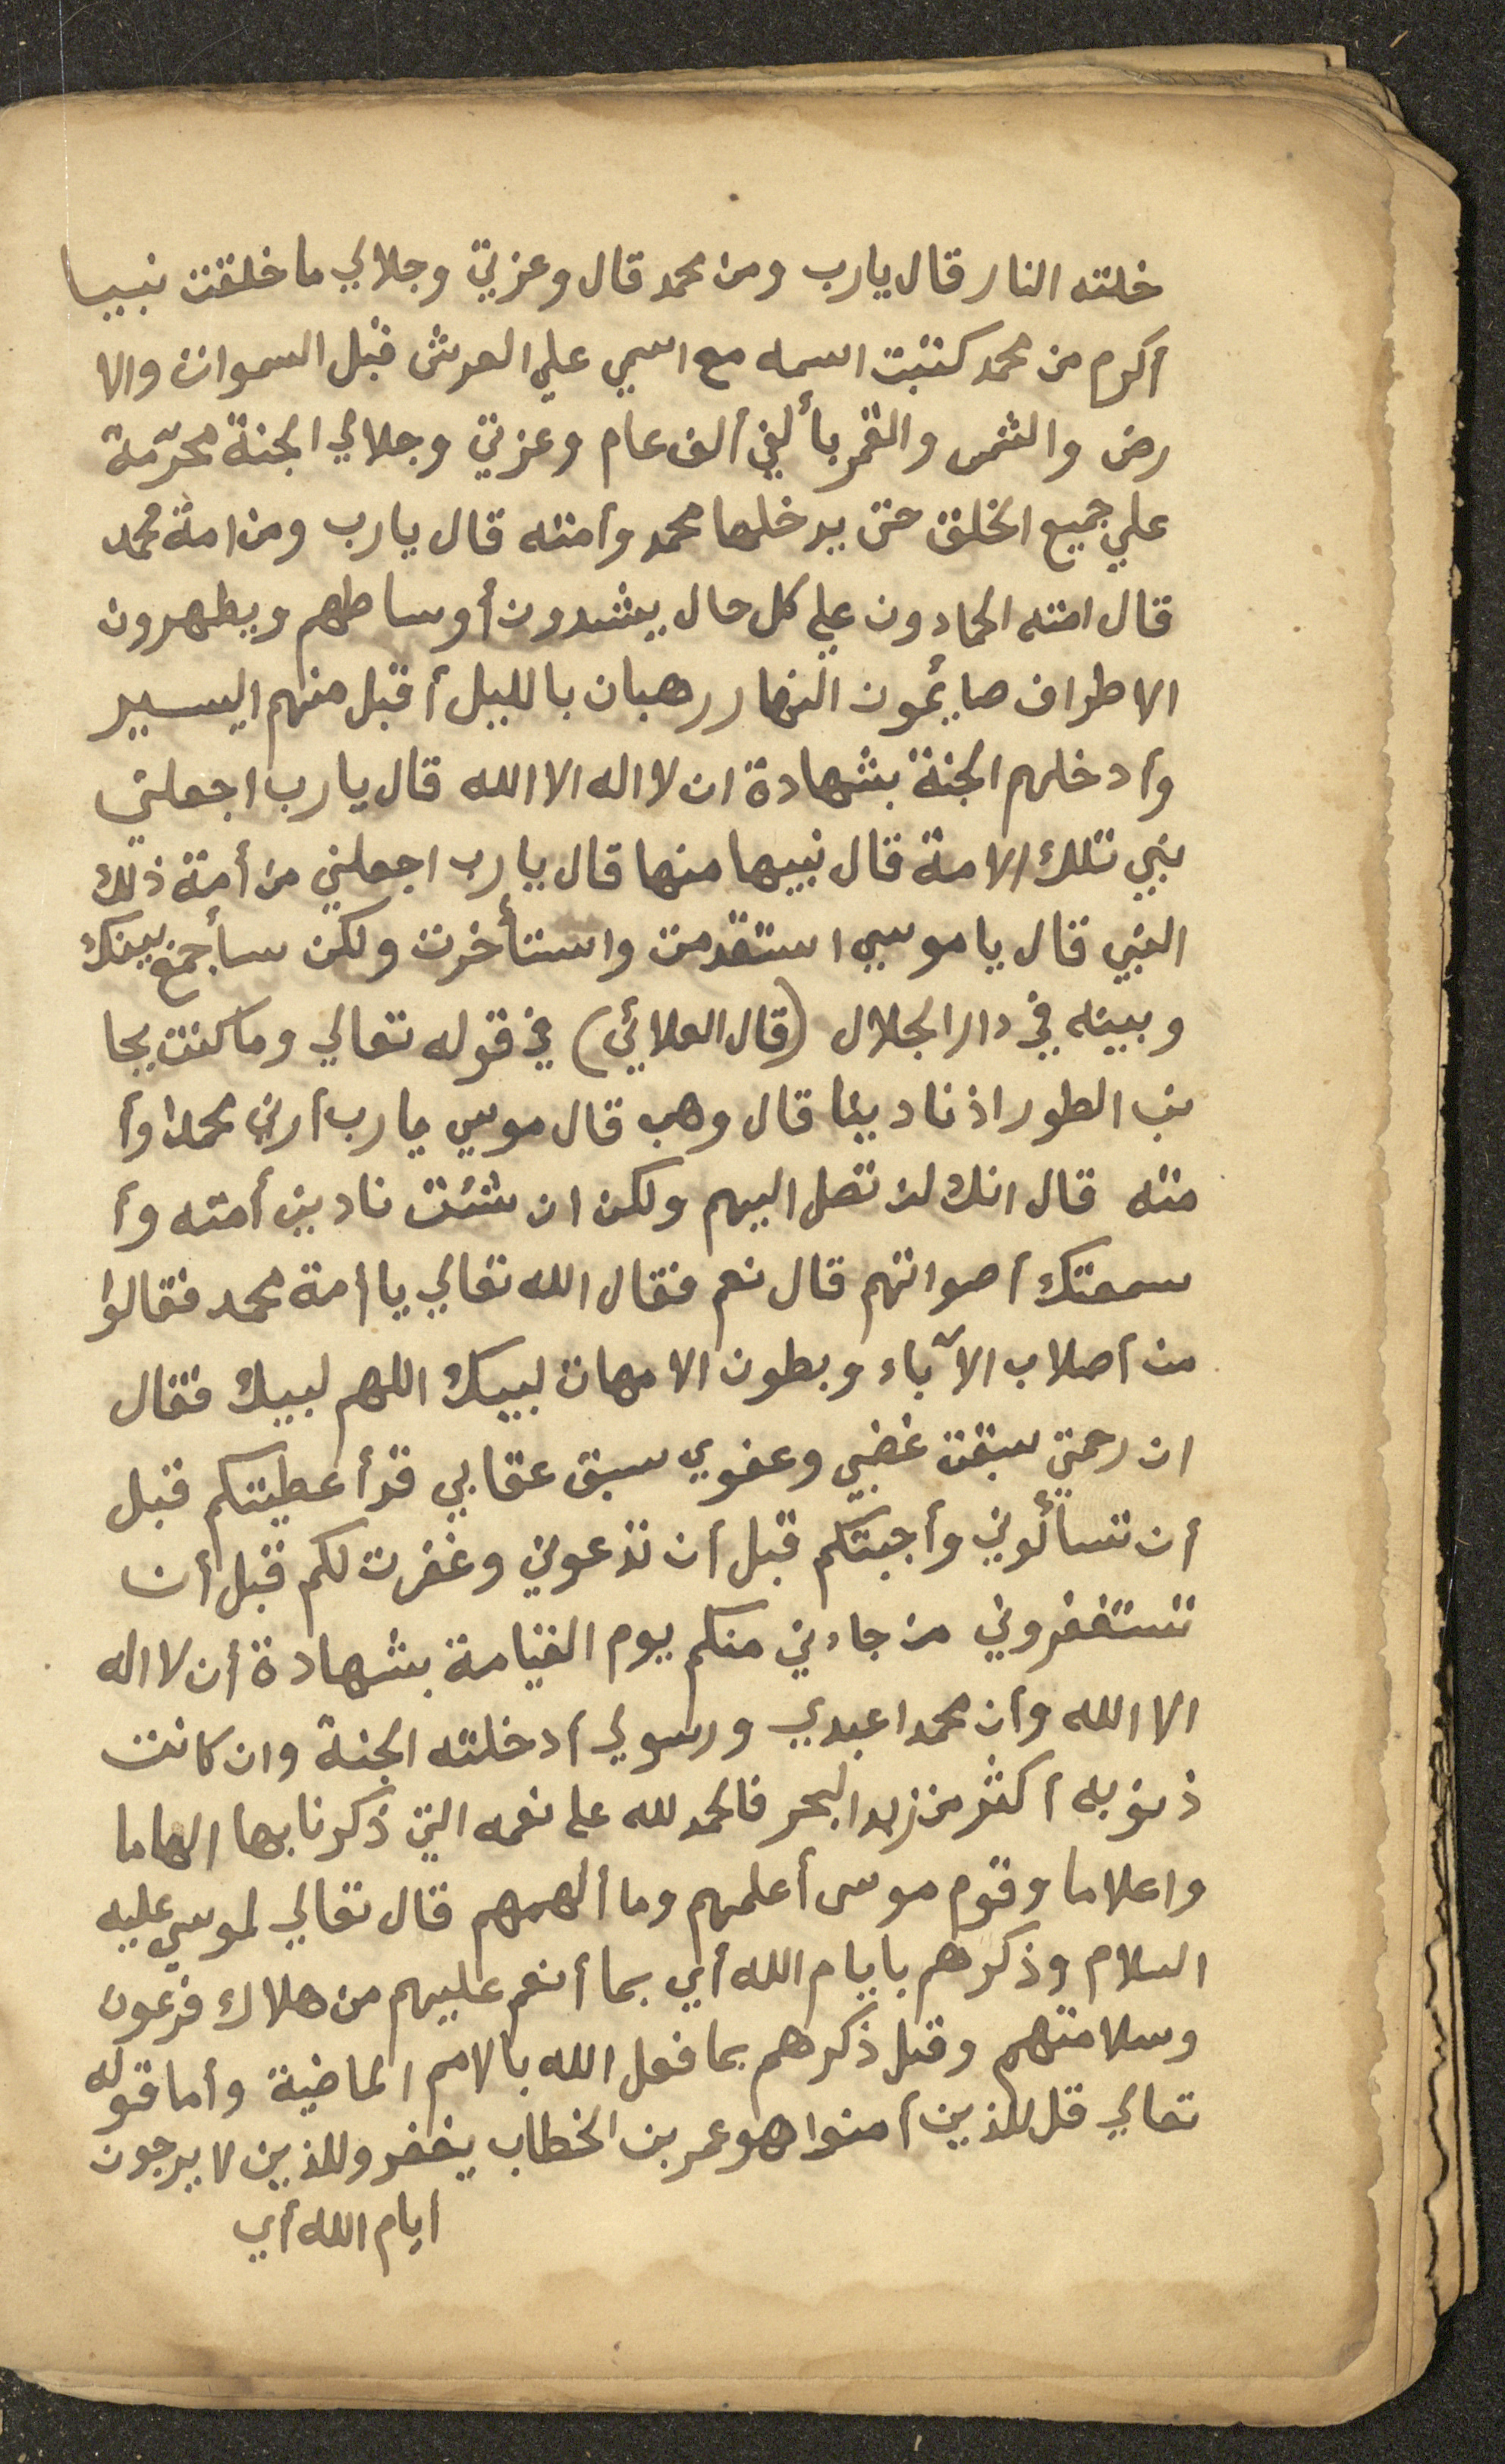 خلته النار قال يارب ومن محمد قال وعزتي وجلالي ما خلقت نبيا
أكرم من محمد كتبت اسمه مع اسمي علي العرش قبل السموات والا
رض والشمس والقمر بألفي ألف عام وعزتي وجلالي الجنة محرّمة
علي جميع الخلق حتي يدخلها محمد وأمته قال يارب ومن امة محمد
قال امته الحمادون علي كل حال يشدون أوساطهم ويطهرون
الاطراف صايئمون النهار رهبان بالليل أقبل منهم اليسير
وأدخلهم الجنة بشهادة ان لااله الاالله قال يارب اجعلني
نبي تلك الامة قال نبيها منها قال يارب اجعلني من أمة ذلك
النبي قال ياموسي استقدمت واستأخرت ولكن سأجمع بينك
وبينه في دار الجلال (قال العلائي) في قوله تعالي وماكنت بجا
نب الطور اذ نادينا قال وهب قال موسي يارب أرني محمدا وأ
مته قال انك لن تصل اليهم ولكن ان شئت ناديت أمته وأ
سمعتك أصواتهم قال نعم فقال الله تعالي ياأمة محمد فقالوا
من أصلاب الآباء وبطون الامهات لبيك اللهم لبيك فقال
ان رحمتي سبقت غضبي وعفوي سبق عقابي قد أعطيتكم قبل
أن تسألوني وأجبتكم قبل أن تدعوني وغفرت لكم قبل أن
تستغفروني من جاءني منكم يوم القيامة بشهادة أن لااله
الاالله وأن محمدا عبدي ورسولي أدخلته الجنة وان كانت
ذنوبه أكثر من زبد البحر فالحمد لله على نعمه التي ذكرنا بها الهاما
واعلاما وقوم موسى أعلمهم وما ألهمهم قال تعالي لموسي عليه
السلام وذكرهم بايام الله أي بما أنعم عليهم من هلاك فرعون
وسلامتهم وقيل ذكرهم بما فعل الله بالامم الماضية وأما قوله
تعالي قل للذين أمنوا هو عمر بن الخطاب يغفروللذين لا يرجون
أيام الله أي